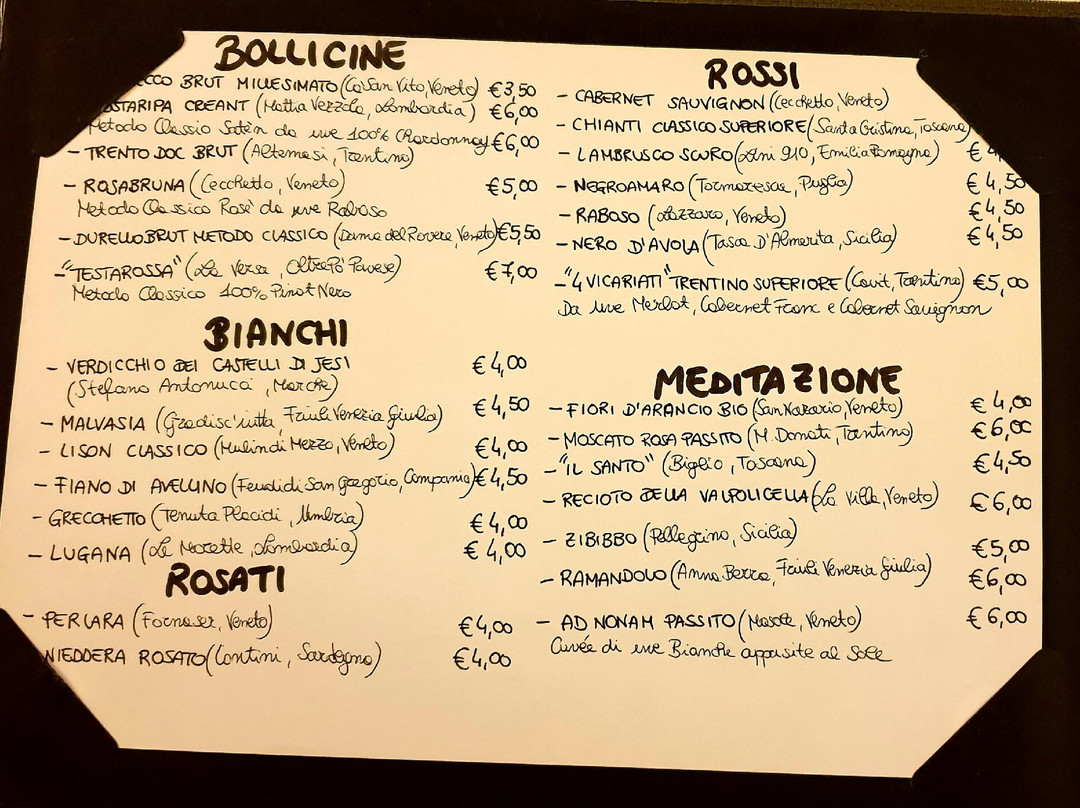 BOLLICINE
ECCO BRUT MILLESIMATO (Ca San Vito, Veneto) €3,50
OSTARIPA CREANT (Mattia Vezzola, Lombardia) €6,00
Metodo Classio Satèn da uve 100% Chardonnay
- TRENTO DOC BRUT (Altemasi, Trentino) €6,00
- ROSABRUNA (Cecchetto, Veneto) €5,00
Metodo Classico Rosè da uve Raboso
- DURELLO BRUT METODO CLASSICO (Dama del Rovere, Veneto) €5,50
- "TESTAROSSA" (La Versa, Oltrepò Pavese) €7,00
Metodo Classico 100% Pinot Nero
BIANCHI
- VERDICCHIO DEI CASTELLI DI JESI €4,00
(Stefano Antonucci, Marche)
- MALVASIA (Gradisc'iutta, Friuli Venezia Giulia) €4,50
- LISON CLASSICO (Mulin di Mezzo, Veneto) €4,00
- FIANO DI AVELLINO (Feudi di San Gregorio, Campania) €4,50
- GRECCHETTO (Tenuta Placidi, Umbria) €4,00
- LUGANA (Le Morette, Lombardia) €4,00
ROSATI
- PERLARA (Fornaser, Veneto) €4,00
NIEDDERA ROSATO (Contini, Sardegna) €4,00
ROSSI
- CABERNET SAUVIGNON (Cecchetto, Veneto)
- CHIANTI CLASSICO SUPERIORE (Santa Cristina, Toscana)
- LAMBRUSCO SCURO (Lini 910, Emilia Romagna) € 4,
- NEGROAMARO (Tormaresca, Puglia) € 4,50
- RABOSO (Lazzaro, Veneto) € 4,50
- NERO D'AVOLA (Tasca D'Almerita, Sicilia) € 4,50
- "4 VICARIATI" TRENTINO SUPERIORE (Cavit, Trentino) €5,00
Da uve Merlot, Cabernet Franc e Cabernet Sauvignon
MEDITAZIONE
- FIORI D'ARANCIO BIO (San Nazario, Veneto) € 4,00
- MOSCATO ROSA PASSITO (M. Donati, Trentino) € 6,00
- "IL SANTO" (Biglio, Toscana) € 4,50
- RECIOTO DELLA VALPOLICELLA (La Villa, Veneto) € 6,00
- ZIBIBBO (Pellegrino, Sicilia) €5,00
- RAMANDOLO (Anna Berra, Friuli Venezia Giulia) €6,00
- AD NONAM PASSITO (Masote, Veneto) € 6,00
Cuvée di uve Bianche appassite al Sole